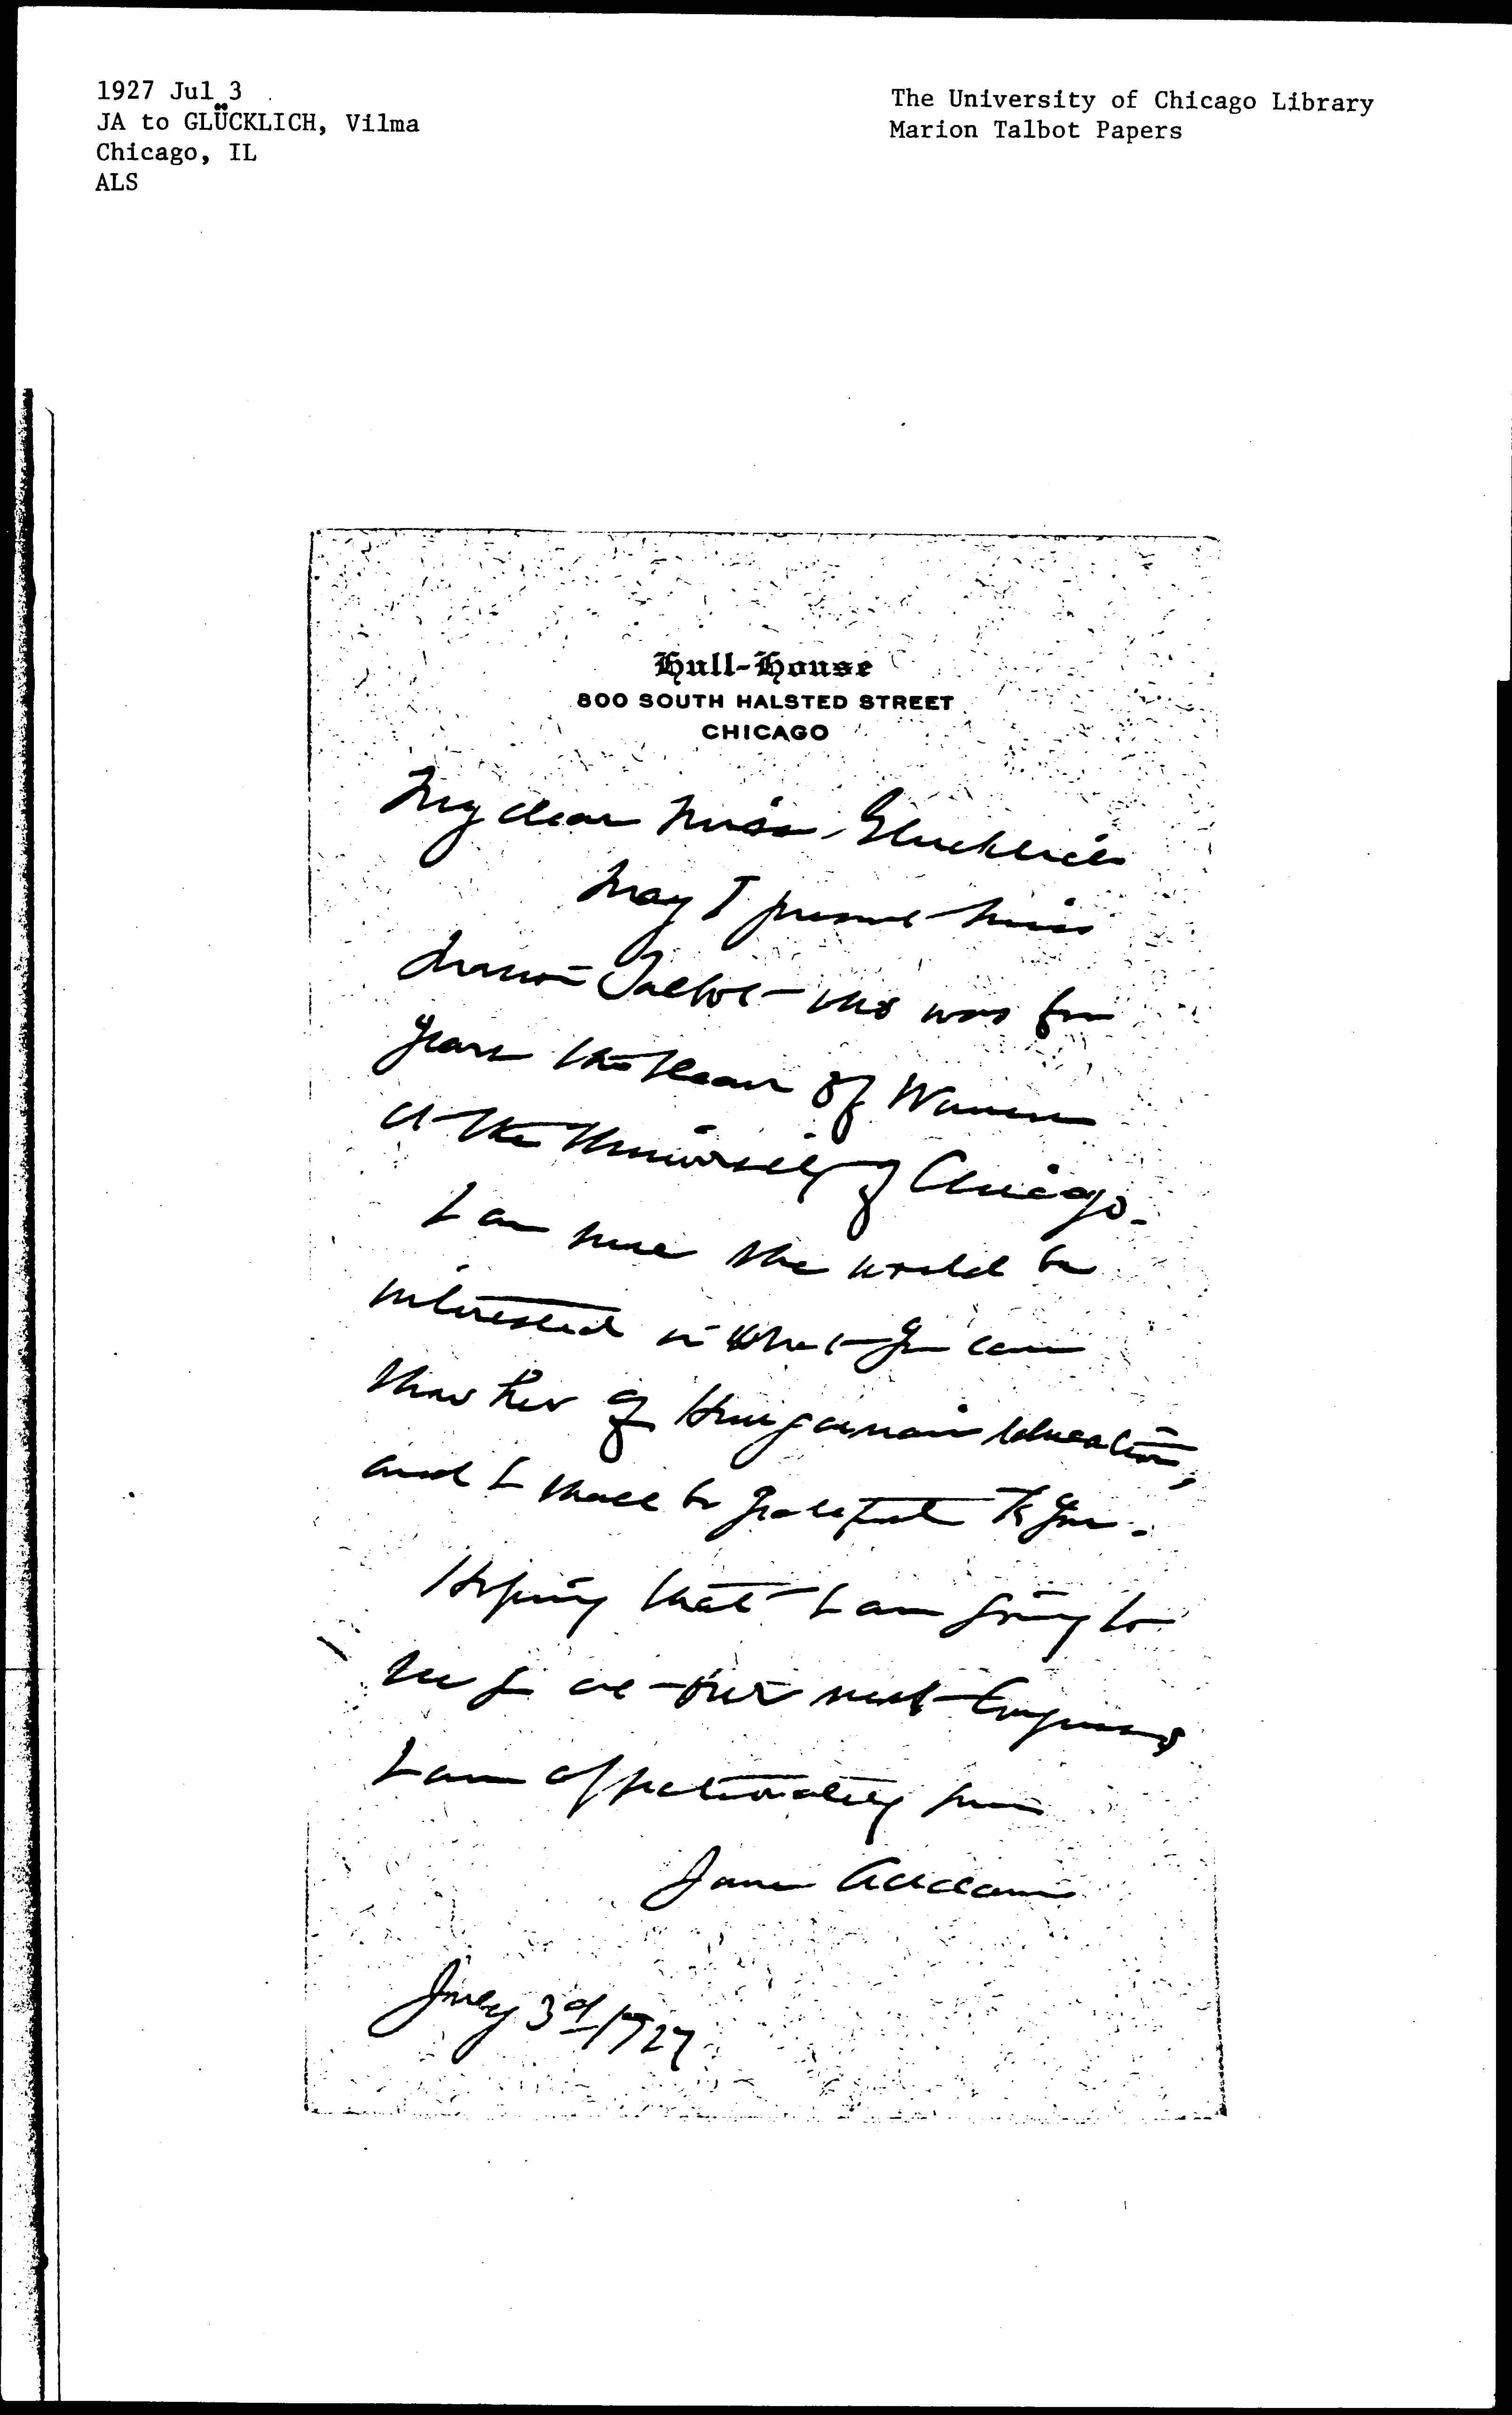 1927 Jul 3
JA to GLÜCKLICH, Vilma
Chicago, IL
ALS
The University of Chicago Library
Marion Talbot Papers
Hull-House
800 SOUTH HALSTED STREET
CHICAGO
My dear Miss Glucklich
May I present Miss
Marion Talbot who was for
years the Dean of Women
at the University of Chicago.
I am sure she would be
interested in what you can
show her of Hungarian education,
and I shall be grateful to you.
Hoping that I am going to
see you at our next Congress
I am affectionately yours
Jane Addams
July 3d/1927